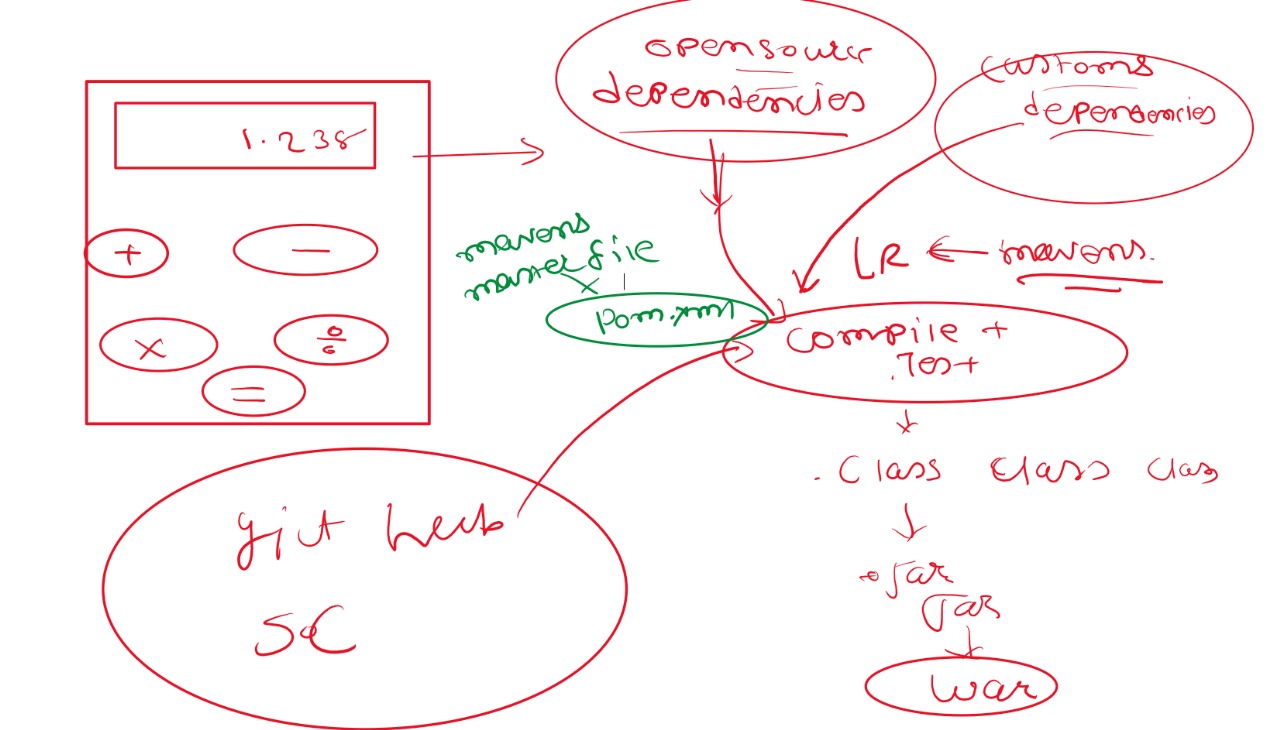 1.238
+
-
×
÷
=
opensource
dependencies
customs
dependencies
mavens
master file
×
pom.xml
LR ← mavens.
compile +
.Test
.class class clas
.Jar
Jar
war
git hub
SC